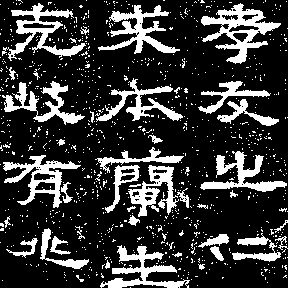 孝友之仁
来本蘭生
克岐有兆